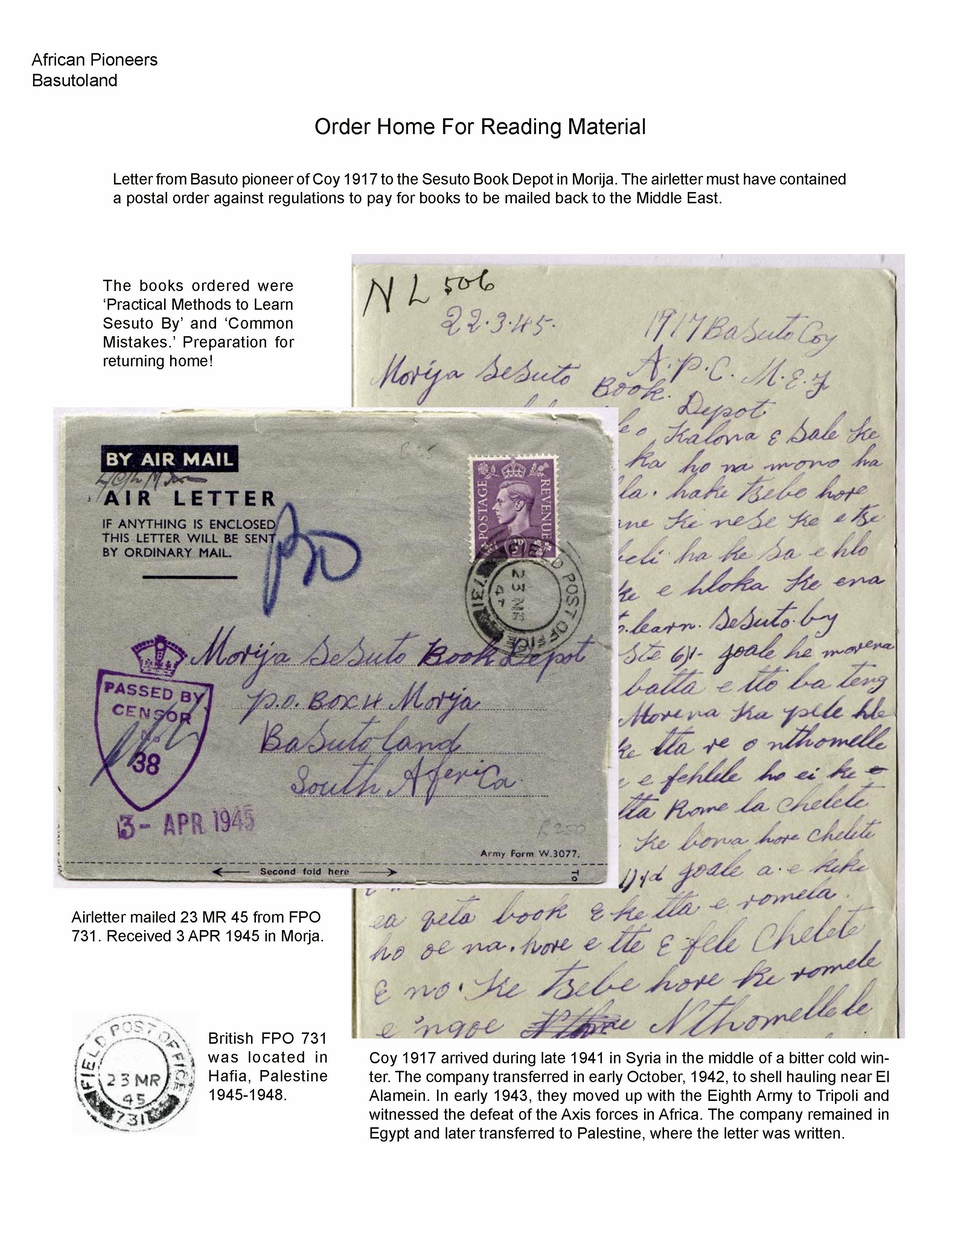 African Pioneers
Basutoland
Order Home For Reading Material
Letter from Basuto pioneer of Coy 1917 to the Sesuto Book Depot in Morija. The airletter must have contained
a postal order against regulations to pay for books to be mailed back to the Middle East.
The books ordered were
‘Practical Methods to Learn
Sesuto By’ and ‘Common
Mistakes.’ Preparation for
returning home!
NL 506
22.3.45.
1917 Basuto Coy
A.P.C. M.E.F
Morija Sesuto Book Depot
Kalona E Sale Ke
ka ho na mono ha
la. hake Tsebe hore
ne Ke nese Ke etse
beli ha ke sa e hlo
ke e hloka Ke ena
to.learn. Sesuto.by
6/- joale he morena
batla e tto ba teng
Morena Ka pele hle
ke tla re o nthomelle
e fehlele ho ei ke
tta Rome la Chelete
Ke bona hore Chelete
joale a.e kiki
ea qeta book E ke tta e romela.
ho oe na.hore e tte E fele Chelete
E no. Ke Tsebe hore ke romele
e 'ngoe Nthomellele
BY AIR MAIL
AIR LETTER
IF ANYTHING IS ENCLOSED
THIS LETTER WILL BE SENT
BY ORDINARY MAIL.
POSTAGE
REVENUE
FIELD POST OFFICE
731
23 MR
Morija Sesuto Book Depot
P.O. BOX 4 Morja
Basutoland
South Aferica.
PASSED BY
CENSOR
No
38
3- APR 1945
R250
Army Form W.3077.
Second fold here
To
Airletter mailed 23 MR 45 from FPO
731. Received 3 APR 1945 in Morja.
FIELD POST OFFICE
23 MR
45
731
British FPO 731
was located in
Hafia, Palestine
1945-1948.
Coy 1917 arrived during late 1941 in Syria in the middle of a bitter cold win-
ter. The company transferred in early October, 1942, to shell hauling near El
Alamein. In early 1943, they moved up with the Eighth Army to Tripoli and
witnessed the defeat of the Axis forces in Africa. The company remained in
Egypt and later transferred to Palestine, where the letter was written.